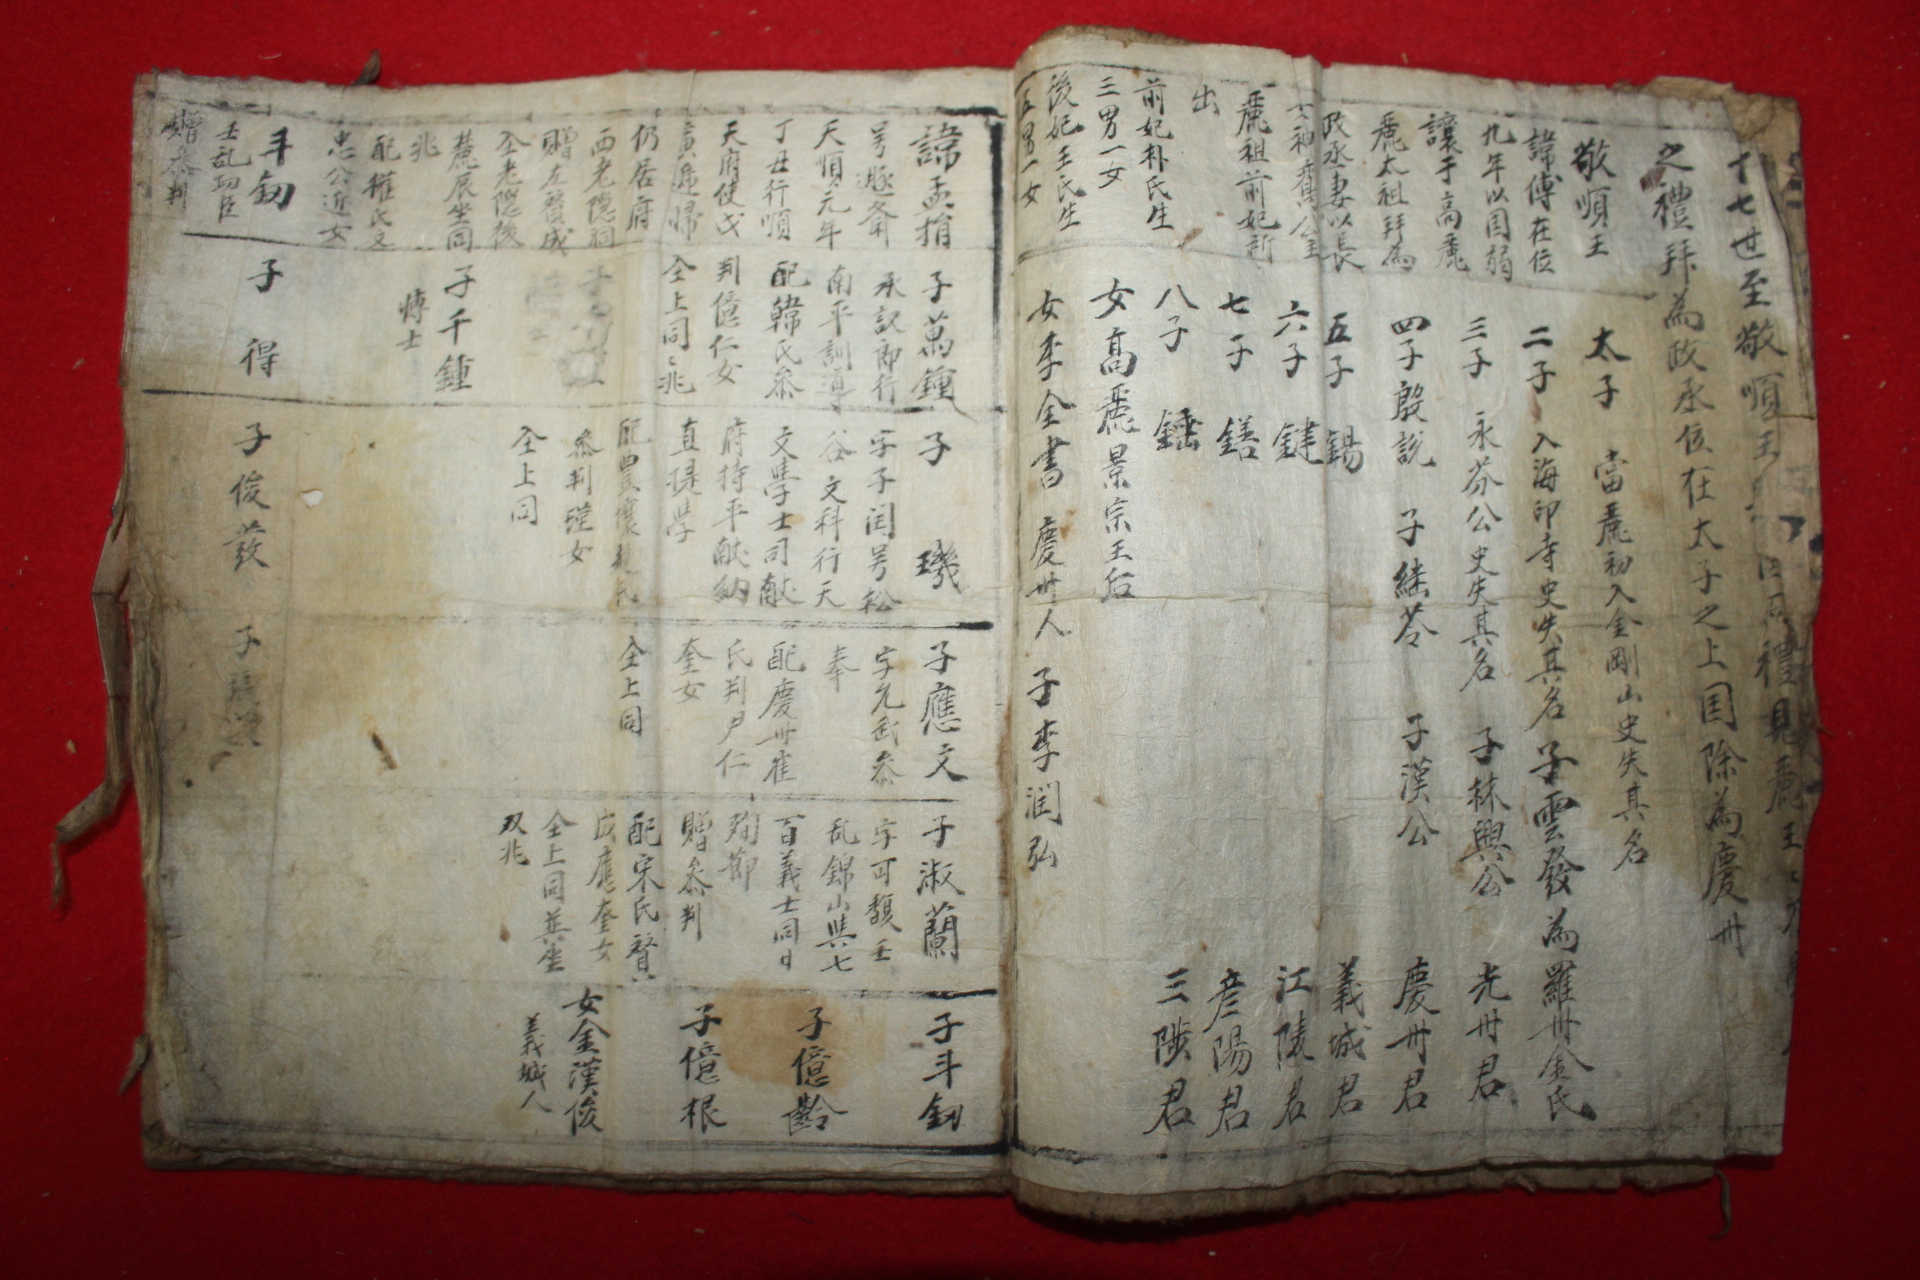 十七世至敬順王
禮見麗王
之禮拜為政丞位在太子之上国除為慶州
敬順王
諱傅在位
九年以国弱
讓于高麗
麗太祖拜為
政丞妻以長
女神鸞公主
麗祖前妃所
出
前妃朴氏生
三男一女
後妃王氏生
五男一女
太子 當麗初入金剛山史失其名
二子 入海印寺史失其名 子雲發 為羅州金氏
三子 永芬公史失其名 子林興公 光州君
四子殷說 子継苓 子漢公 慶州君
五子 錫 義城君
六子 鍵 江陵君
七子 鐥 彦陽君
八子 錘 三陟君
女高麗景宗王后
女李全書 慶州人 子李潤弘
諱孟
号
天順元年
丁丑行順
天府使戊
寅逓歸
仍居府
西老隠洞
贈左賛成
仝老隠後
麓辰坐同
兆
配權氏文
忠公近女
斗釰
壬乱功臣
贈叅判
子萬鍾
承訳郎行
南平訓導
配韓氏叅
判億仁女
仝上同兆
子千鍾
博士
子 得
子 璣
字子閏号松
谷文科行天
文學士司献
府持平献納
直提學
配豊壤趙氏
叅判瑾女
仝上同
子俊發
子應文
字允武叅
奉
配慶州崔
氏判尹仁
奎女
仝上同
子淑蘭
字可馥壬
乱錦山與七
百義士同日
殉節
贈叅判
配宋氏賛
成應奎女
仝上同並坐
双兆
子斗釰
子億齡
子億根
女金漢俊
義城人